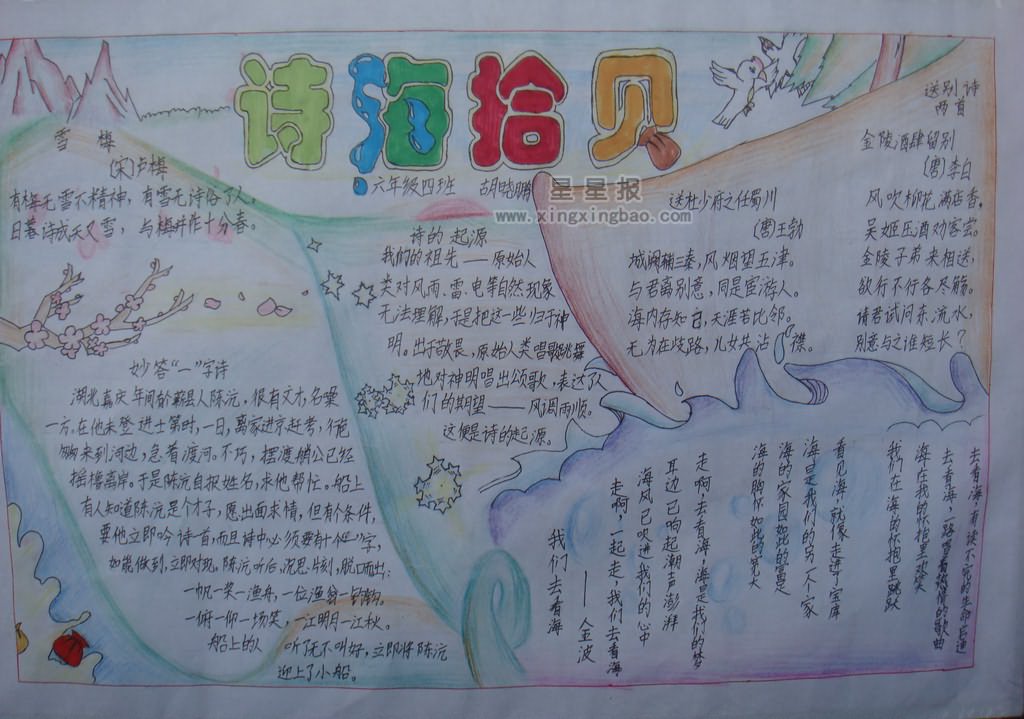 诗海拾贝
六年级四班 胡晓鹏
星星报
www.xingxingbao.com
雪梅
(宋)卢梅
有梅无雪不精神,有雪无诗俗了人。
日暮诗成天又雪,与梅并作十分春。
妙答“一”字诗
湖北嘉庆年间蕲县人陈沆,很有文才,名噪
一方,在他未登进士第时,一日,离家进京赶考,
来到河边,急着渡河。不巧,摆渡艄公已经
摇橹离岸。于是陈沆自报姓名,求他帮忙。船上
有人知道陈沆是个才子,愿出面求情,但有个条件,
要他立即吟诗一首,而且诗中必须要有十个“一”字,
如能做到,立即对现。陈沆听后,沉思片刻,脱口而出:
一帆一桨一渔舟,一位渔翁一钓钩。
一俯一仰一场笑,一江明月一江秋。
船上的人听了无不叫好,立即将陈沆
迎上了小船。
诗的起源
我们的祖先——原始人
类对风雨、雷、电等自然现象
无法理解,于是把这一些归于神
明。出于敬畏,原始人类唱歌跳舞
地对神明唱出颂歌,表达了人
们的期望——风调雨顺。
这便是诗的起源。
送杜少府之任蜀川
(唐)王勃
城阙辅三秦,风烟望五津。
与君离别意,同是宦游人。
海内存知己,天涯若比邻。
无为在歧路,儿女共沾襟。
送别诗
两首
金陵酒肆留别
(唐)李白
风吹柳花满店香,
吴姬压酒劝客尝。
金陵子弟来相送,
欲行不行各尽觞。
请君试问东流水,
别意与之谁短长?
去看海,有读不完的
去看海,一路响着被海的歌曲
海在我的怀抱里欢笑
我们在海的怀抱里跳跃
看见海,就像走进了宝库
海是我们的另一个家
海的家园如此的富足
海的胸怀如此的宽大
走啊,去看海,海是我们的梦
耳边已响起潮声澎湃
海风已吹进我们的心中
走啊,一起走,我们去看海
——金波
我们去看海